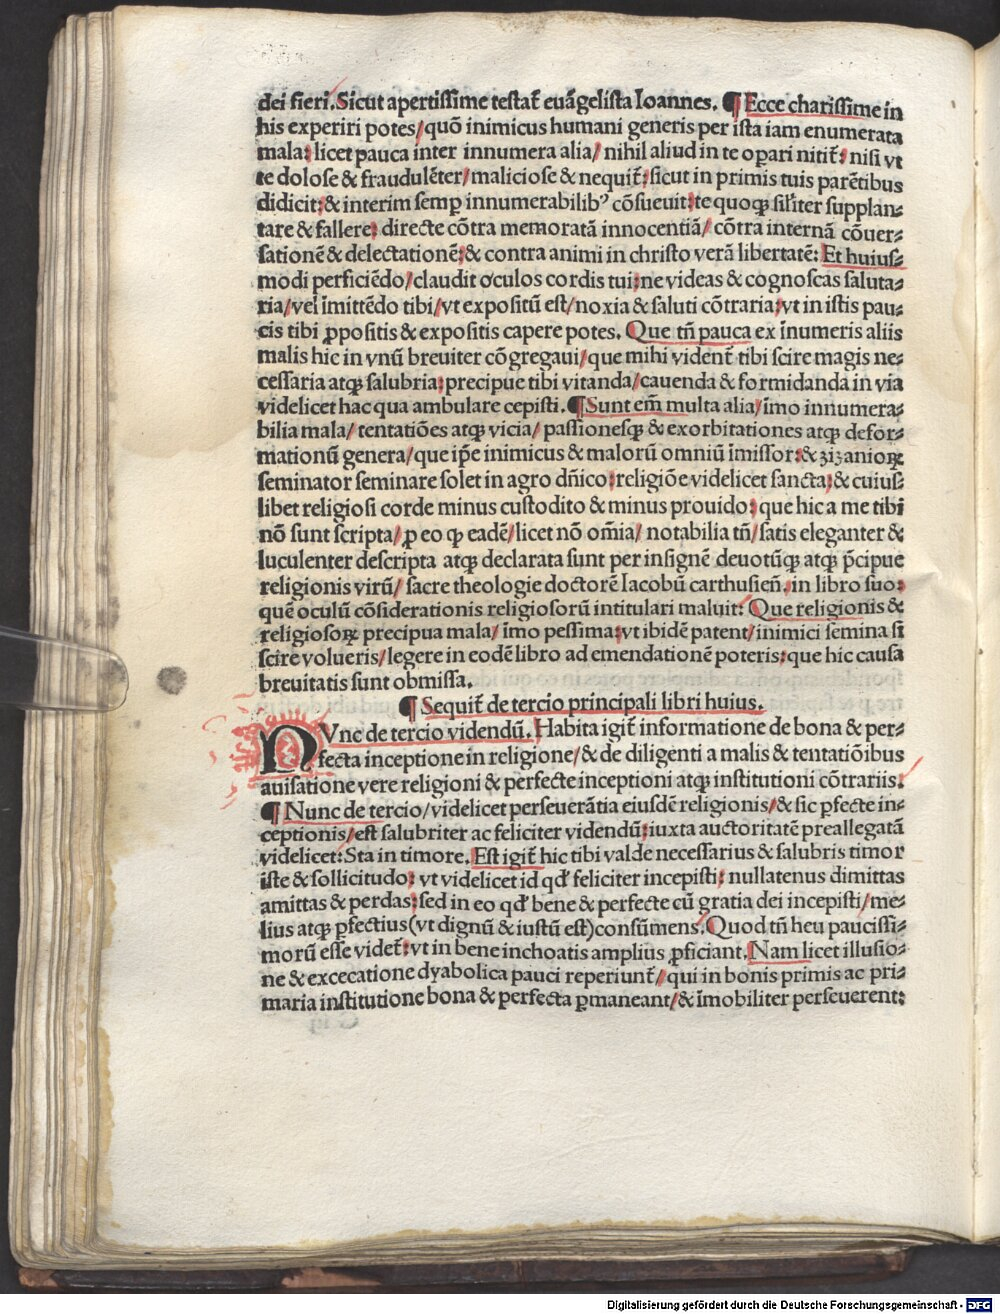 dei fieri. Sicut apertissime testat᷑ euãgelista Ioannes. ¶ Ecce charissime in
his experiri potes/ quõ inimicus humani generis per ista iam enumerata
mala: licet pauca inter innumera alia/ nihil aliud in te oꝑari nitit᷑: nisi vt
te dolose & fraudulẽter/ maliciose & nequit᷑: sicut in primis tuis parẽtibus
didicit: & interim semꝑ innumerabilibꝰ cõsueuit: te quoqꝫ sil᷑iter supplan-
tare & fallere: directe cõtra memoratã innocentiã/ cõtra internã cõuer-
sationẽ & delectationẽ: & contra animi in christo verã libertatẽ: Et huius-
modi perficiẽdo/ claudit oculos cordis tui: ne videas & cognoscas saluta-
ria/ vel ĩmittẽdo tibi/ vt expositũ est/ noxia & saluti cõtraria: vt in istis pau-
cis tibi ꝓpositis & expositis capere potes. Que tñ pauca ex ĩnumeris aliis
malis hic in vnũ breuiter cõgregaui/ que mihi vident᷑ tibi scire magis ne-
cessaria atqꝫ salubria: precipue tibi vitanda/ cauenda & formidanda in via
videlicet hac qua ambulare cepisti. ¶ Sunt em̃ multa alia/ ĩmo innumera-
bilia mala/ tentatiões atqꝫ vicia/ passionesqꝫ & exorbitationes atqꝫ defor-
mationũ genera/ que ip̃e inimicus & malorũ omniũ ĩmissor: & zizanioꝝ
seminator seminare solet in agro dñico: religiõe videlicet sancta: & cuius-
libet religiosi corde minus custodito & minus prouido: que hic a me tibi
nõ sunt scripta/ ꝓ eo ꝙ eadẽ/ licet nõ om̃ia/ notabilia tñ/ satis eleganter &
luculenter descripta atqꝫ declarata sunt per insignẽ deuotũqꝫ atqꝫ p̃cipue
religionis virũ/ sacre theologie doctorẽ Iacobũ carthusieñ. in libro suo:
quẽ oculũ cõsiderationis religiosorũ intitulari maluit: Que religionis &
religiosoꝝ precipua mala/ ĩmo pessima: vt ibidẽ patent/ inimici semina si
scire volueris/ legere in eodẽ libro ad emendationẽ poteris: que hic causa
breuitatis sunt obmissa.
¶ Sequit᷑ de tercio principali libri huius.
NVnc de tercio videndũ. Habita igit᷑ informatione de bona & per-
fecta inceptione in religione/ & de diligenti a malis & tentatiõibus
auisatione vere religioni & perfecte inceptioni atqꝫ institutioni cõtrariis.
¶ Nunc de tercio/ videlicet perseuerãtia eiusdẽ religionis/ & sic ꝑfecte in-
ceptionis/ est salubriter ac feliciter videndũ: iuxta auctoritatẽ preallegatã
videlicet: Sta in timore. Est igit᷑ hic tibi valde necessarius & salubris timor
iste & sollicitudo: vt videlicet id qđ feliciter incepisti: nullatenus dimittas
amittas & perdas: sed in eo qđ bene & perfecte cũ gratia dei incepisti/ me-
lius atqꝫ ꝑfectius (vt dignũ & iustũ est) consũmens. Quod tñ heu paucissi-
morũ esse videt᷑: vt in bene inchoatis amplius ꝓficiant. Nam licet illusio-
ne & excecatione dyabolica pauci reperiunt᷑/ qui in bonis primis ac pri-
maria institutione bona & perfecta ꝑmaneant/ & ĩmobiliter perseuerent:
Digitalisierung gefördert durch die Deutsche Forschungsgemeinschaft - DFG